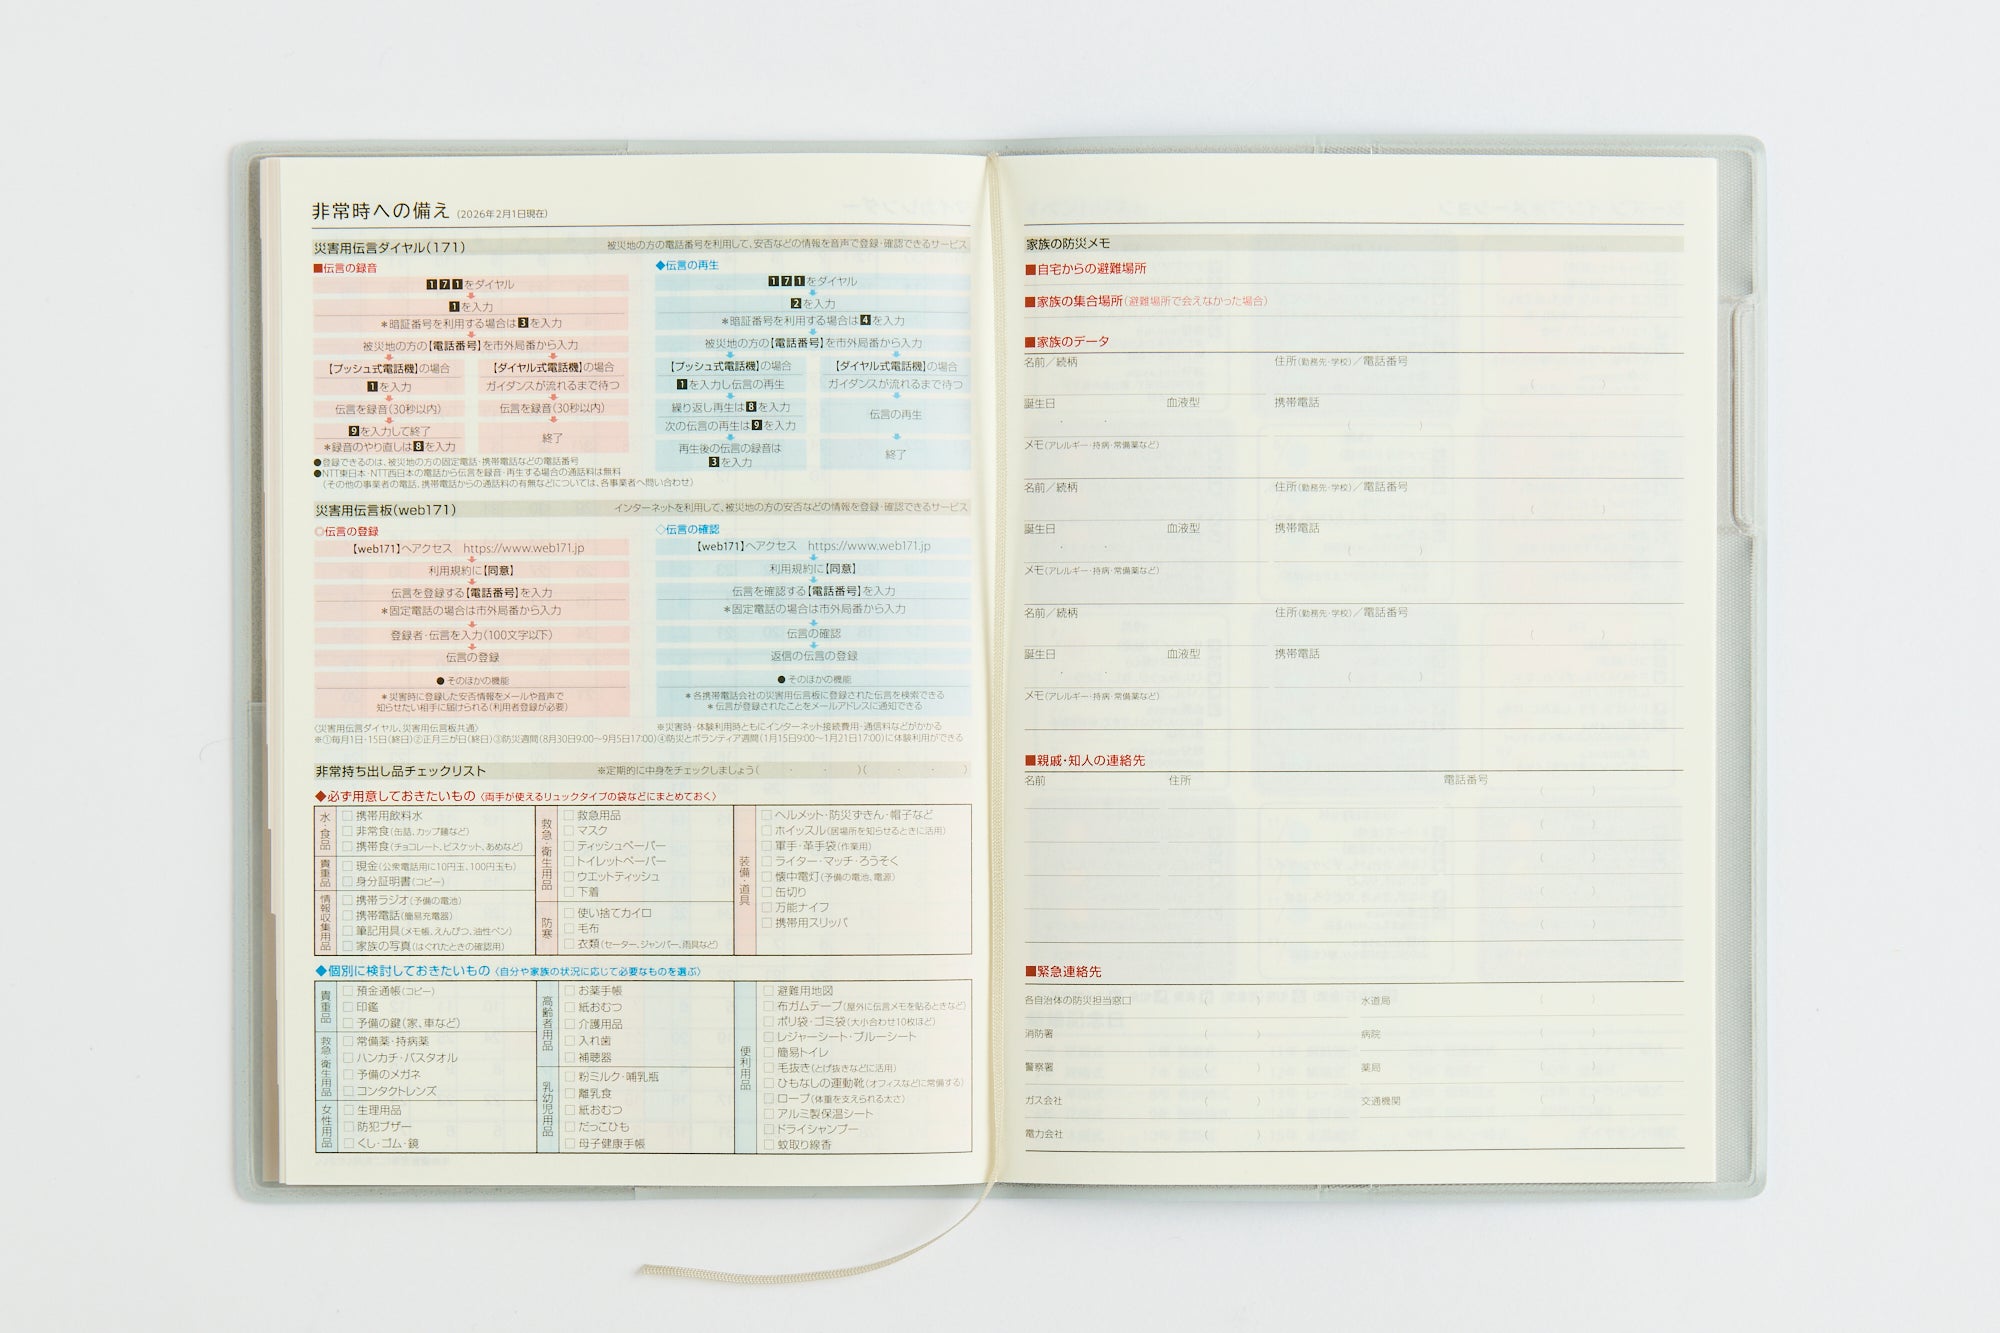 非常時への備え（2026年2月1日現在）
災害用伝言ダイヤル（171） 被災地の方の電話番号を利用して、安否などの情報を音声で登録・確認できるサービス
■伝言の録音
171をダイヤル
1を入力
＊暗証番号を利用する場合は3を入力
被災地の方の【電話番号】を市外局番から入力
【プッシュ式電話機】の場合
1を入力
伝言を録音（30秒以内）
9を入力して終了
＊録音のやり直しは8を入力
【ダイヤル式電話機】の場合
ガイダンスが流れるまで待つ
伝言を録音（30秒以内）
終了
◆伝言の再生
171をダイヤル
2を入力
＊暗証番号を利用する場合は4を入力
被災地の方の【電話番号】を市外局番から入力
【プッシュ式電話機】の場合
1を入力し伝言の再生
繰り返し再生は8を入力
次の伝言の再生は9を入力
再生後の伝言の録音は
3を入力
【ダイヤル式電話機】の場合
ガイダンスが流れるまで待つ
伝言の再生
終了
●登録できるのは、被災地の方の固定電話・携帯電話などの電話番号
●NTT東日本・NTT西日本の電話から伝言を録音・再生する場合の通話料は無料
（その他の事業者の電話、携帯電話からの通話料の有無などについては、各事業者へ問い合わせ）
災害用伝言板（web171） インターネットを利用して、被災地の方の安否などの情報を登録・確認できるサービス
◎伝言の登録
【web171】へアクセス https://www.web171.jp
利用規約に【同意】
伝言を登録する【電話番号】を入力
＊固定電話の場合は市外局番から入力
登録者・伝言を入力（100文字以下）
伝言の登録
●そのほかの機能
＊災害時に登録した安否情報をメールや音声で
知らせたい相手に届けられる（利用者登録が必要）
◇伝言の確認
【web171】へアクセス https://www.web171.jp
利用規約に【同意】
伝言を確認する【電話番号】を入力
＊固定電話の場合は市外局番から入力
伝言の確認
返信の伝言の登録
●そのほかの機能
＊各携帯電話会社の災害用伝言板に登録された伝言を検索できる
＊伝言が登録されたことをメールアドレスに通知できる
〈災害用伝言ダイヤル、災害用伝言板共通〉 ※災害時・体験利用時ともにインターネット接続費用・通信料などがかかる
※①毎月1日・15日（終日）②正月三が日（終日）③防災週間（8月30日9:00〜9月5日17:00）④防災とボランティア週間（1月15日9:00〜1月21日17:00）に体験利用ができる
非常持ち出し品チェックリスト ※定期的に中身をチェックしましょう（ ・ ・ ）（ ・ ・ ）
◆必ず用意しておきたいもの〈両手が使えるリュックタイプの袋などにまとめておく〉
水・食品
□携帯用飲料水
□非常食（缶詰、カップ麺など）
□携帯食（チョコレート、ビスケット、あめなど）
貴重品
□現金（公衆電話用に10円玉、100円玉も）
□身分証明書（コピー）
情報収集用品
□携帯ラジオ（予備の電池）
□携帯電話（簡易充電器）
□筆記用具（メモ帳、えんぴつ、油性ペン）
□家族の写真（はぐれたときの確認用）
救急・衛生用品
□救急用品
□マスク
□ティッシュペーパー
□トイレットペーパー
□ウエットティッシュ
□下着
防寒
□使い捨てカイロ
□毛布
□衣類（セーター、ジャンパー、雨具など）
装備・道具
□ヘルメット・防災ずきん・帽子など
□ホイッスル（居場所を知らせるときに活用）
□軍手・革手袋（作業用）
□ライター・マッチ・ろうそく
□懐中電灯（予備の電池、電源）
□缶切り
□万能ナイフ
□携帯用スリッパ
◆個別に検討しておきたいもの〈自分や家族の状況に応じて必要なものを選ぶ〉
貴重品
□預金通帳（コピー）
□印鑑
□予備の鍵（家、車など）
救急・衛生用品
□常備薬・持病薬
□ハンカチ・バスタオル
□予備のメガネ
□コンタクトレンズ
女性用品
□生理用品
□防犯ブザー
□くし・ゴム・鏡
高齢者用品
□お薬手帳
□紙おむつ
□介護用品
□入れ歯
□補聴器
乳幼児用品
□粉ミルク・哺乳瓶
□離乳食
□紙おむつ
□だっこひも
□母子健康手帳
便利用品
□避難用地図
□布ガムテープ（屋外に伝言メモを貼るときなど）
□ポリ袋・ゴミ袋（大小合わせ10枚ほど）
□レジャーシート・ブルーシート
□簡易トイレ
□毛抜き（とげ抜きなどに活用）
□ひもなしの運動靴（オフィスなどに常備する）
□ロープ（体重を支えられる太さ）
□アルミ製保温シート
□ドライシャンプー
□蚊取り線香
家族の防災メモ
■自宅からの避難場所
■家族の集合場所（避難場所で会えなかった場合）
■家族のデータ
名前／続柄 住所（勤務先・学校）／電話番号
（ ）
誕生日 血液型 携帯電話
・ ・ （ ）
メモ（アレルギー・持病・常備薬など）
名前／続柄 住所（勤務先・学校）／電話番号
（ ）
誕生日 血液型 携帯電話
・ ・ （ ）
メモ（アレルギー・持病・常備薬など）
名前／続柄 住所（勤務先・学校）／電話番号
（ ）
誕生日 血液型 携帯電話
・ ・ （ ）
メモ（アレルギー・持病・常備薬など）
■親戚・知人の連絡先
名前 住所 電話番号
（ ）
（ ）
（ ）
（ ）
（ ）
■緊急連絡先
各自治体の防災担当窓口 （ ） 水道局 （ ）
消防署 （ ） 病院 （ ）
警察署 （ ） 薬局 （ ）
ガス会社 （ ） 交通機関 （ ）
電力会社 （ ）